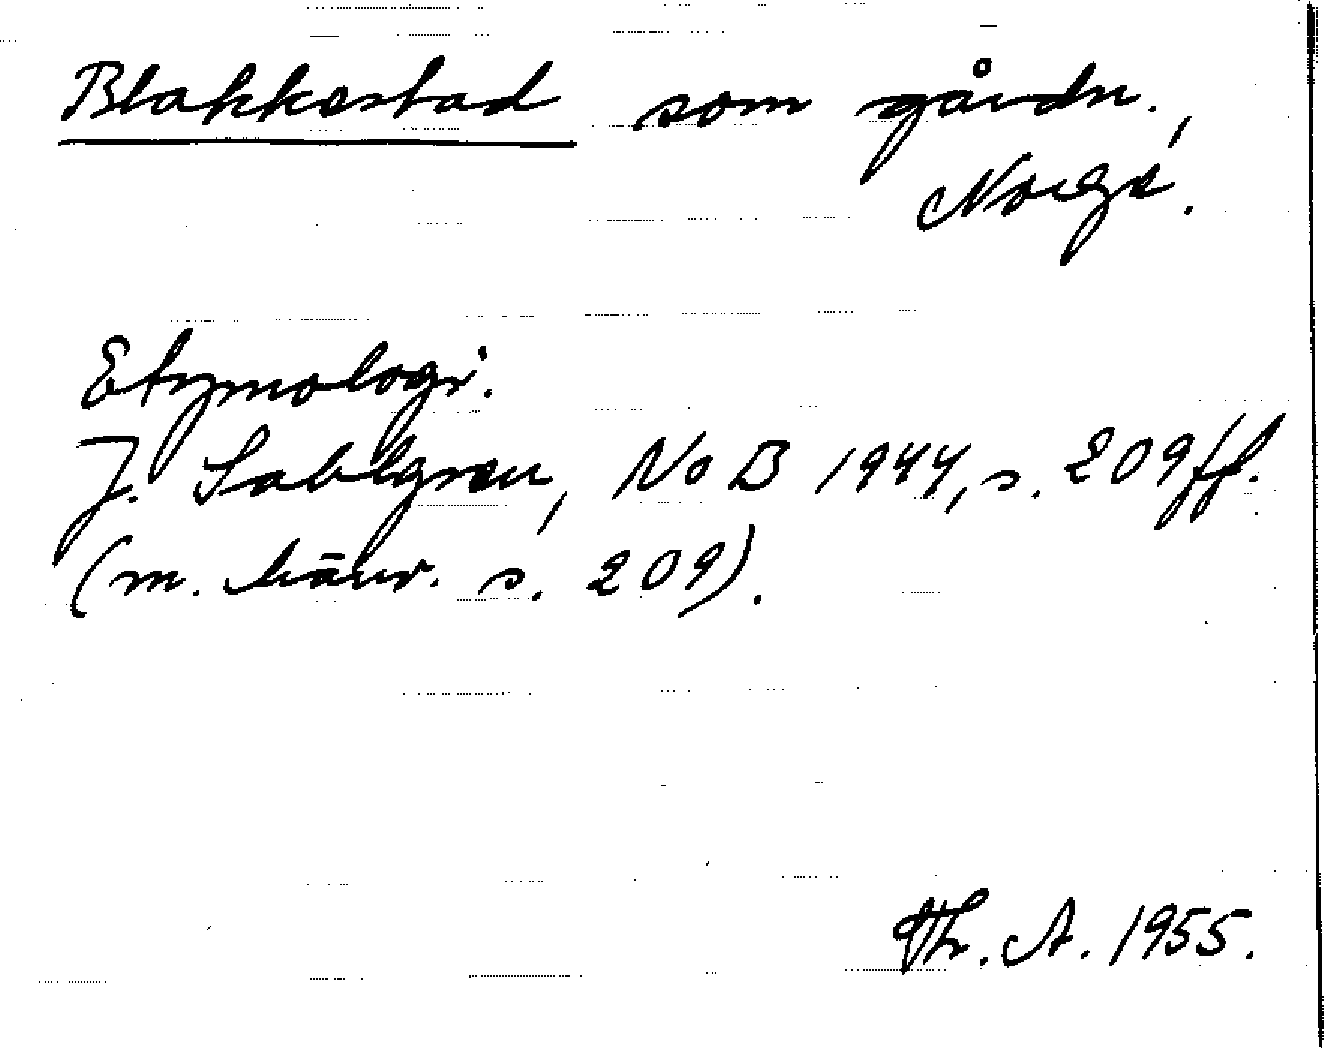 Blakkestad som gårdn.,
Norge.
Etymologi.
J. Sahlgren, NoB 1944, s. 209 ff.
(m. hänv. s. 209).
Th. A. 1955.